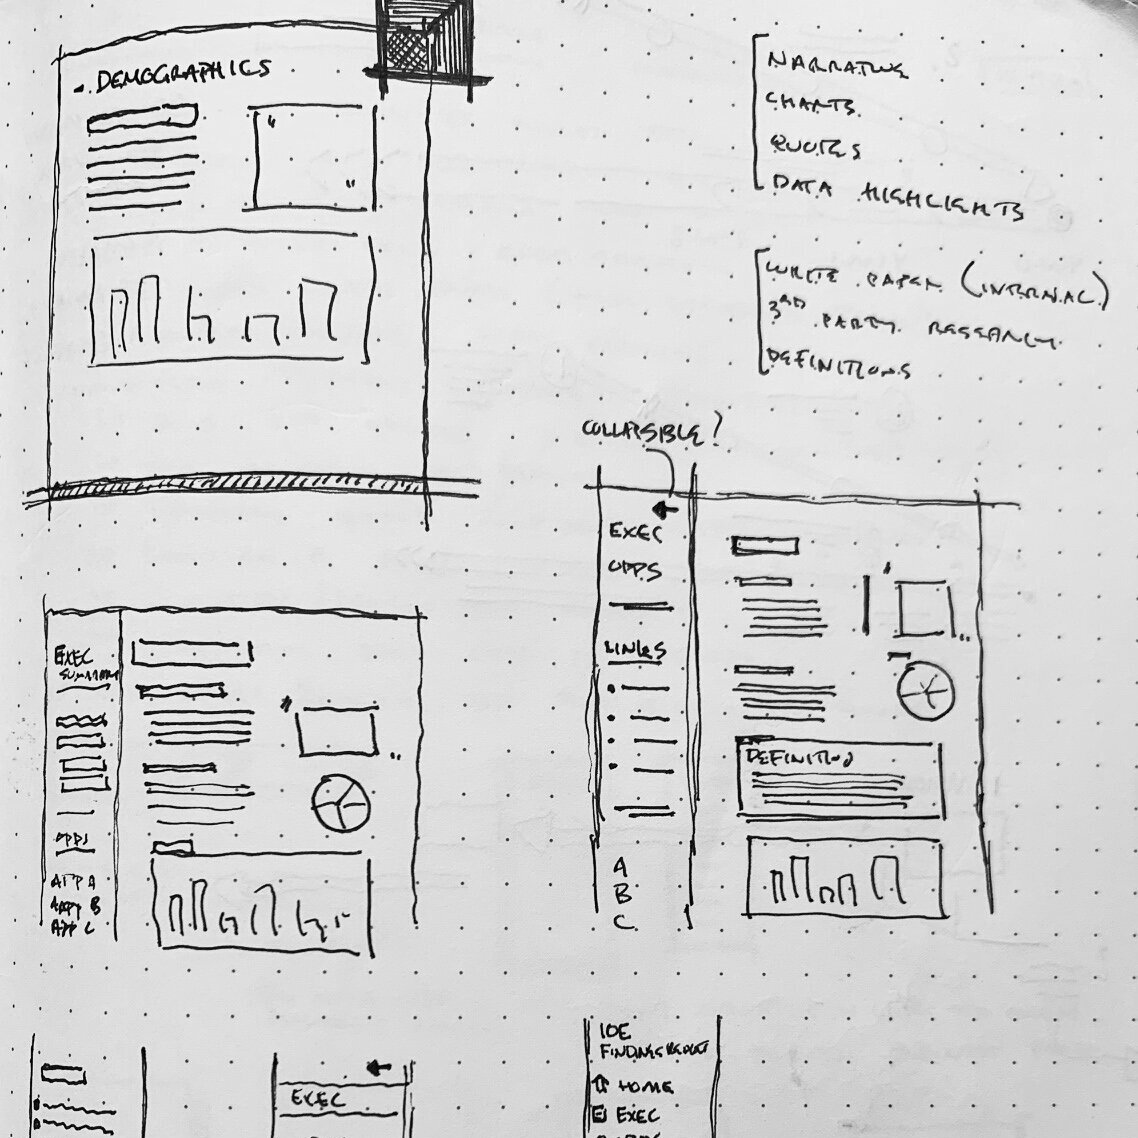 DEMOGRAPHICS
NARRATIVE
CHARTS
QUOTES
DATA HIGHLIGHTS
WHITE PAPER (INTERNAL)
3RD PARTY RESEARCH
DEFINITIONS
COLLAPSIBLE?
EXEC
OPPS
LINKS
A
B
C
DEFINITION
EXEC
SUMMARY
APPS
APP A
APP B
APP C
EXEC
IOE
FINDINGS REPORT
HOME
EXEC